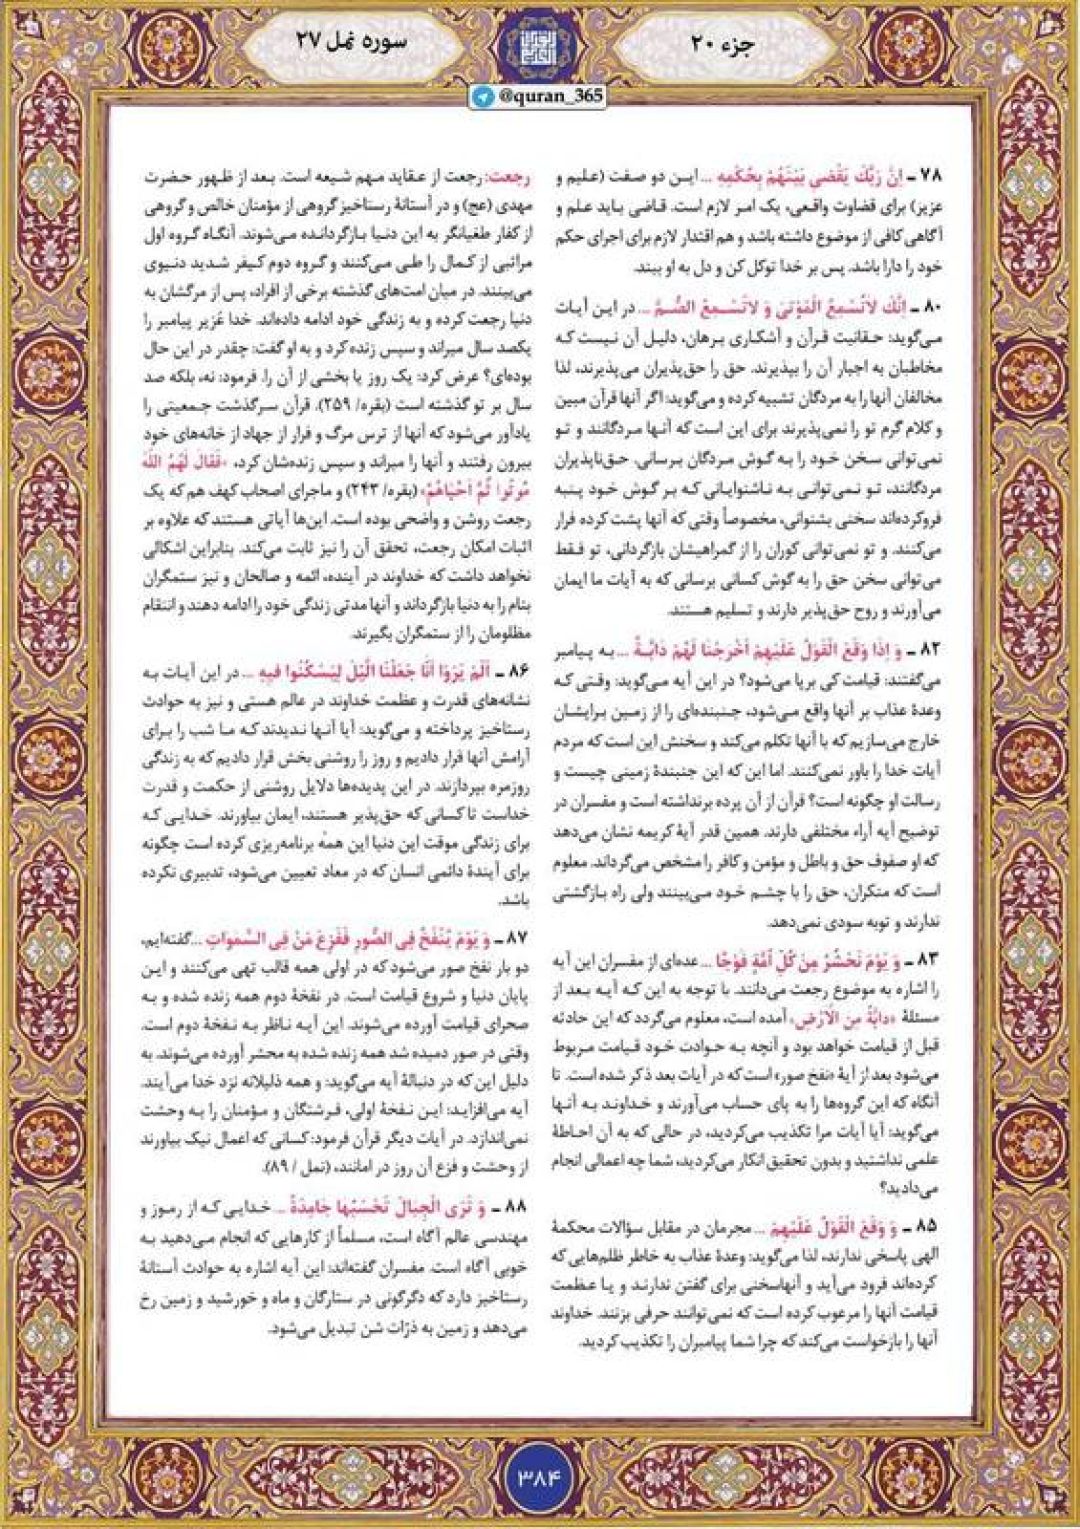 جزء ۲۰
سوره نمل ۲۷
@quran_365
۷۸ ـ اِنَّ رَبَّكَ يَقْضى بَيْنَهُمْ بِحُكْمِهِ ... ایـن دو صفت (علیم و
عزیز) برای قضاوت واقعی، یک امر لازم است. قاضی باید علم و
آگاهی کافی از موضوع داشته باشد و هم اقتدار لازم برای اجرای حکم
خود را دارا باشد. پس بر خدا توکل کن و دل به او ببند.
۸۰ ـ اِنَّكَ لاتُسْمِعُ الْمَوْتىٰ وَ لاتُسْمِعُ الصُّمَّ ... در این آیات
می‌گوید: حقانیت قرآن و آشکاری برهان، دلیل آن نیست که
مخاطبان به اجبار آن را بپذیرند. حق را حق‌پذیران می‌پذیرند، لذا
مخالفان آنها را به مردگان تشبیه کرده و می‌گوید: اگر آنها قرآن مبین
و کلام گرم تو را نمی‌پذیرند برای این است که آنها مردگانند و تو
نمی‌توانی سخن خود را به گوش مردگان برسانی. حق‌ناپذیران
مردگانند، تو نمی‌توانی به ناشنوایانی که بر گوش خود پنبه
فروکرده‌اند سخنی بشنوانی، مخصوصاً وقتی که آنها پشت کرده فرار
می‌کنند. و تو نمی‌توانی کوران را از گمراهیشان بازگردانی، تو فقط
می‌توانی سخن حق را به گوش کسانی برسانی که به آیات ما ایمان
می‌آورند و روح حق‌پذیر دارند و تسلیم هستند.
۸۲ ـ وَ اِذا وَقَعَ الْقَوْلُ عَلَيْهِمْ اَخْرَجْنا لَهُمْ دابَّةً ... به پیامبر
می‌گفتند: قیامت کی برپا می‌شود؟ در این آیه می‌گوید: وقتی که
وعدهٔ عذاب بر آنها واقع می‌شود، جنبنده‌ای را از زمین برایشان
خارج می‌سازیم که با آنها تکلم می‌کند و سخنش این است که مردم
آیات خدا را باور نمی‌کنند. اما این که این جنبندهٔ زمینی چیست و
رسالت او چگونه است؟ قرآن از آن پرده برنداشته است و مفسران در
توضیح آیه آراء مختلفی دارند. همین قدر آیهٔ کریمه نشان می‌دهد
که او صفوف حق و باطل و مؤمن و کافر را مشخص می‌گرداند. معلوم
است که منکران، حق را با چشم خود می‌بینند ولی راه بازگشتی
ندارند و توبه سودی نمی‌دهد.
۸۳ ـ وَ يَوْمَ نَحْشُرُ مِنْ كُلِّ اُمَّةٍ فَوْجًا ... عده‌ای از مفسران این آیه
را اشاره به موضوع رجعت می‌دانند. با توجه به این که آیه بعد از
مسئلهٔ «دابَّةً مِنَ الْاَرْضِ» آمده است، معلوم می‌گردد که این حادثه
قبل از قیامت خواهد بود و آنچه به حوادث خود قیامت مربوط
می‌شود بعد از آیهٔ «نفخ صور» است که در آیات بعد ذکر شده است. تا
آنگاه که این گروه‌ها را به پای حساب می‌آورند و خداوند به آنها
می‌گوید: آیا آیات مرا تکذیب می‌کردید، در حالی که به آن احاطهٔ
علمی نداشتید و بدون تحقیق انکار می‌کردید، شما چه اعمالی انجام
می‌دادید؟
۸۵ ـ وَ وَقَعَ الْقَوْلُ عَلَيْهِمْ ... مجرمان در مقابل سؤالات محکمهٔ
الهی پاسخی ندارند، لذا می‌گوید: وعدهٔ عذاب به خاطر ظلم‌هایی که
کرده‌اند فرود می‌آید و آنها‌سخنی برای گفتن ندارند و یا عظمت
قیامت آنها را مرعوب کرده است که نمی‌توانند حرفی بزنند. خداوند
آنها را بازخواست می‌کند که چرا شما پیامبران را تکذیب کردید.
رجعت: رجعت از عقاید مهم شیعه است. بعد از ظهور حضرت
مهدی (عج) و در آستانهٔ رستاخیز گروهی از مؤمنان خالص و گروهی
از کفار طغیانگر به این دنیا بازگردانده می‌شوند. آنگاه گروه اول
مراتبی از کمال را طی می‌کنند و گروه دوم کیفر شدید دنیوی
می‌بینند. در میان امت‌های گذشته برخی از افراد، پس از مرگشان به
دنیا رجعت کرده و به زندگی خود ادامه داده‌اند. خدا عُزیر پیامبر را
یکصد سال میراند و سپس زنده کرد و به او گفت: چقدر در این حال
بوده‌ای؟ عرض کرد: یک روز یا بخشی از آن را. فرمود: نه، بلکه صد
سال بر تو گذشته است (بقره/ ۲۵۹). قرآن سرگذشت جمعیتی را
یادآور می‌شود که آنها از ترس مرگ و فرار از جهاد از خانه‌های خود
بیرون رفتند و آنها را میراند و سپس زنده‌شان کرد، «فَقالَ لَهُمُ اللهُ
مُوتُوا ثُمَّ اَحْياهُمْ» (بقره/ ۲۴۳) و ماجرای اصحاب کهف هم که یک
رجعت روشن و واضحی بوده است. این‌ها آیاتی هستند که علاوه بر
اثبات امکان رجعت، تحقق آن را نیز ثابت می‌کند. بنابراین اشکالی
نخواهد داشت که خداوند در آینده، ائمه و صالحان و نیز ستمگران
بنام را به دنیا بازگرداند و آنها مدتی زندگی خود را ادامه دهند و انتقام
مظلومان را از ستمگران بگیرند.
۸۶ ـ اَلَمْ يَرَوْا اَنّا جَعَلْنَا الَّيْلَ لِيَسْكُنُوا فيهِ ... در این آیات به
نشانه‌های قدرت و عظمت خداوند در عالم هستی و نیز به حوادث
رستاخیز پرداخته و می‌گوید: آیا آنها ندیدند که ما شب را برای
آرامش آنها قرار دادیم و روز را روشنی بخش قرار دادیم که به زندگی
روزمره بپردازند. در این پدیده‌ها دلایل روشنی از حکمت و قدرت
خداست تا کسانی که حق‌پذیر هستند، ایمان بیاورند. خدایی که
برای زندگی موقت این دنیا این همه برنامه‌ریزی کرده است چگونه
برای آیندهٔ دائمی انسان که در معاد تعیین می‌شود، تدبیری نکرده
باشد.
۸۷ ـ وَ يَوْمَ يُنْفَخُ فِى الصُّورِ فَفَزِعَ مَنْ فِى السَّمٰواتِ ... گفته‌ایم،
دو بار نفخ صور می‌شود که در اولی همه قالب تهی می‌کنند و این
پایان دنیا و شروع قیامت است. در نفخهٔ دوم همه زنده شده و به
صحرای قیامت آورده می‌شوند. این آیه ناظر به نفخهٔ دوم است.
وقتی در صور دمیده شد همه زنده شده به محشر آورده می‌شوند. به
دلیل این که در دنبالهٔ آیه می‌گوید: و همه ذلیلانه نزد خدا می‌آیند.
آیه می‌افزاید: این نفخهٔ اولی، فرشتگان و مؤمنان را به وحشت
نمی‌اندازد. در آیات دیگر قرآن فرمود: کسانی که اعمال نیک بیاورند
از وحشت و فزع آن روز در امانند، (نمل / ۸۹).
۸۸ ـ وَ تَرَى الْجِبالَ تَحْسَبُها جامِدَةً ... خدایی که از رموز و
مهندسی عالم آگاه است، مسلماً از کارهایی که انجام می‌دهید به
خوبی آگاه است. مفسران گفته‌اند: این آیه اشاره به حوادث آستانهٔ
رستاخیز دارد که دگرگونی در ستارگان و ماه و خورشید و زمین رخ
می‌دهد و زمین به ذرّات شن تبدیل می‌شود.
۳۸۴